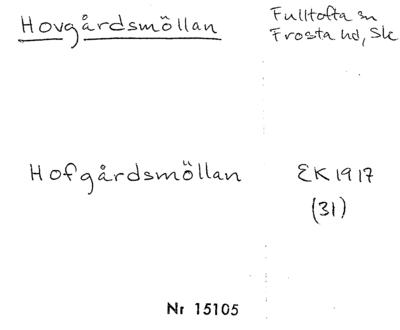 Hovgårdsmöllan
Fulltofta sn
Frosta hd, Sk
Hofgårdsmöllan
EK 1917
(31)
Nr 15105